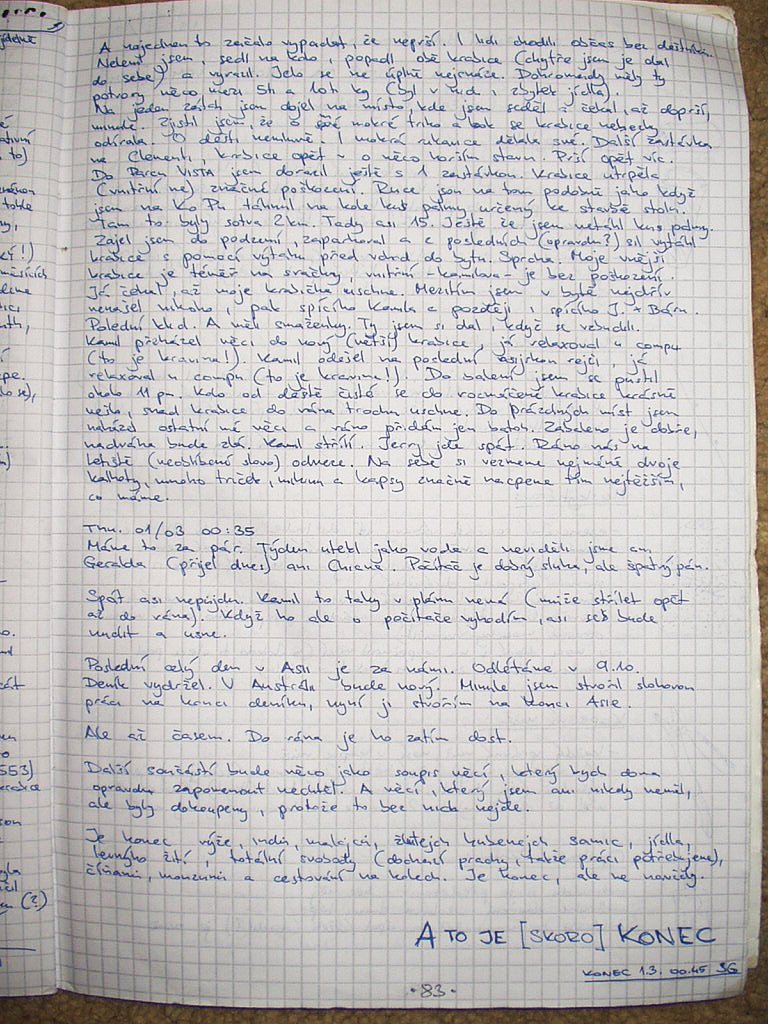 A najednou to začalo vypadat, že neprší. I lidi chodili občas bez deštníku.
Nelenil jsem, sedl na kolo, popadl obě krabice (chytře jsem je dal
do sebe) a vyrazil. Jelo se ne úplně nejsnáze. Dohromady měly ty
potvory něco mezi 5ti a 10ti kg (byl v nich i zbytek jídla).
Na jeden zátah jsem dojel na místo, kde jsem seděl a čekal, až doprší,
minule. Zjistil jsem, že o mokré triko a bok se krabice nehezky
odírala. O dešti nemluvě. I mokrá rukavice dělala své. Další zastávka
na Clementi, krabice opět v o něco horším stavu. Prší opět víc.
Do Parc Vista jsem dorazil ještě s 1 zastávkou. Krabice utrpěla
(vnitřní ne) značné poškození. Ruce jsou na tom podobně jako když
jsem na Ko Pu táhnul na kole kus palmy určený ke stavbě stolu.
Tam to byly sotva 2 km. Tady asi 15. Ještě že jsem netáhl kus palmy.
Zajel jsem do podzemí, zaparkoval a z posledních (opravdu?) sil vytáhl
krabice s pomocí výtahu před vchod do bytu. Sprcha. Moje vnější
krabice je téměř na sračky, vnitřní - kamilova - je bez poškození.
Já čekal, až moje krabička uschne. Mezitím jsem v bytě nejdřív
nenašel nikoho, pak spícího Kamila a později i spícího J. + Báru.
Polední klid. A měli smaženky. Ty jsem si dal, když se vzbudili.
Kamil přeházel věci do nový (větší) krabice, já relaxoval u compu
(to je kravina!). Kamil odešel na poslední asijskou rejži, já
relaxoval u compu (to je kravina!). Do balení jsem se pustil
okolo 11 pm. Kolo od deště čisté se do rozmáčené krabice krásně
vešlo, snad krabice do rána trochu uschne. Do prázdných míst jsem
naházel ostatní mé věci a ráno přidám jen batoh. Zabaleno je dobře,
nadváha bude zlá. Kamil střílí. Jerry jde spát. Ráno nás na
letiště (neoblíbený slovo) odveze. Na sebe si vezmeme nejméně dvoje
kalhoty, mnoho triček, mikinu a kapsy značně nacpené tím nejtěžším,
co máme.
Thu. 01/03 00:35
Máme to za pár. Týden utekl jako voda a neviděli jsme ani
Geralda (přijel dnes) ani Chiana. Počítač je dobrý sluha, ale špatný pán.
Spát asi nepůjdu. Kamil to taky v plánu nemá (může střílet opět
až do rána). Když ho ale o počítače vyhodím, asi se bude
nudit a usne.
Poslední celý den v Asii je za námi. Odlétáme v 9.10.
Deník vydržel. V Austrálii bude nový. Minule jsem stvořil slohovou
práci na konci deníku, nyní ji stvořím na konci Asie.
Ale až časem. Do rána je ho zatím dost.
Další součástí bude něco jako soupis věcí, který bych doma
opravdu zapomenout nechtěl. A věcí, který jsem ani nikdy neměl,
ale byly dokoupeny, protože to bez nich nejde.
Je konec rýže, indů, malajců, žlutejch samic, jídla,
levnýho žití, totální svobody (dochází prachy, takže práci potřebujeme),
číňanů, monzunů a cestování na kolech. Je konec, ale ne navždy.
A TO JE [SKORO] KONEC
KONEC 1.3. 00.45 SG
·83·